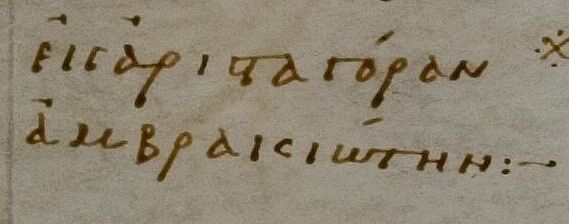 εἰς ἀρισταγόραν ※
ἀμβρακιώτην:–